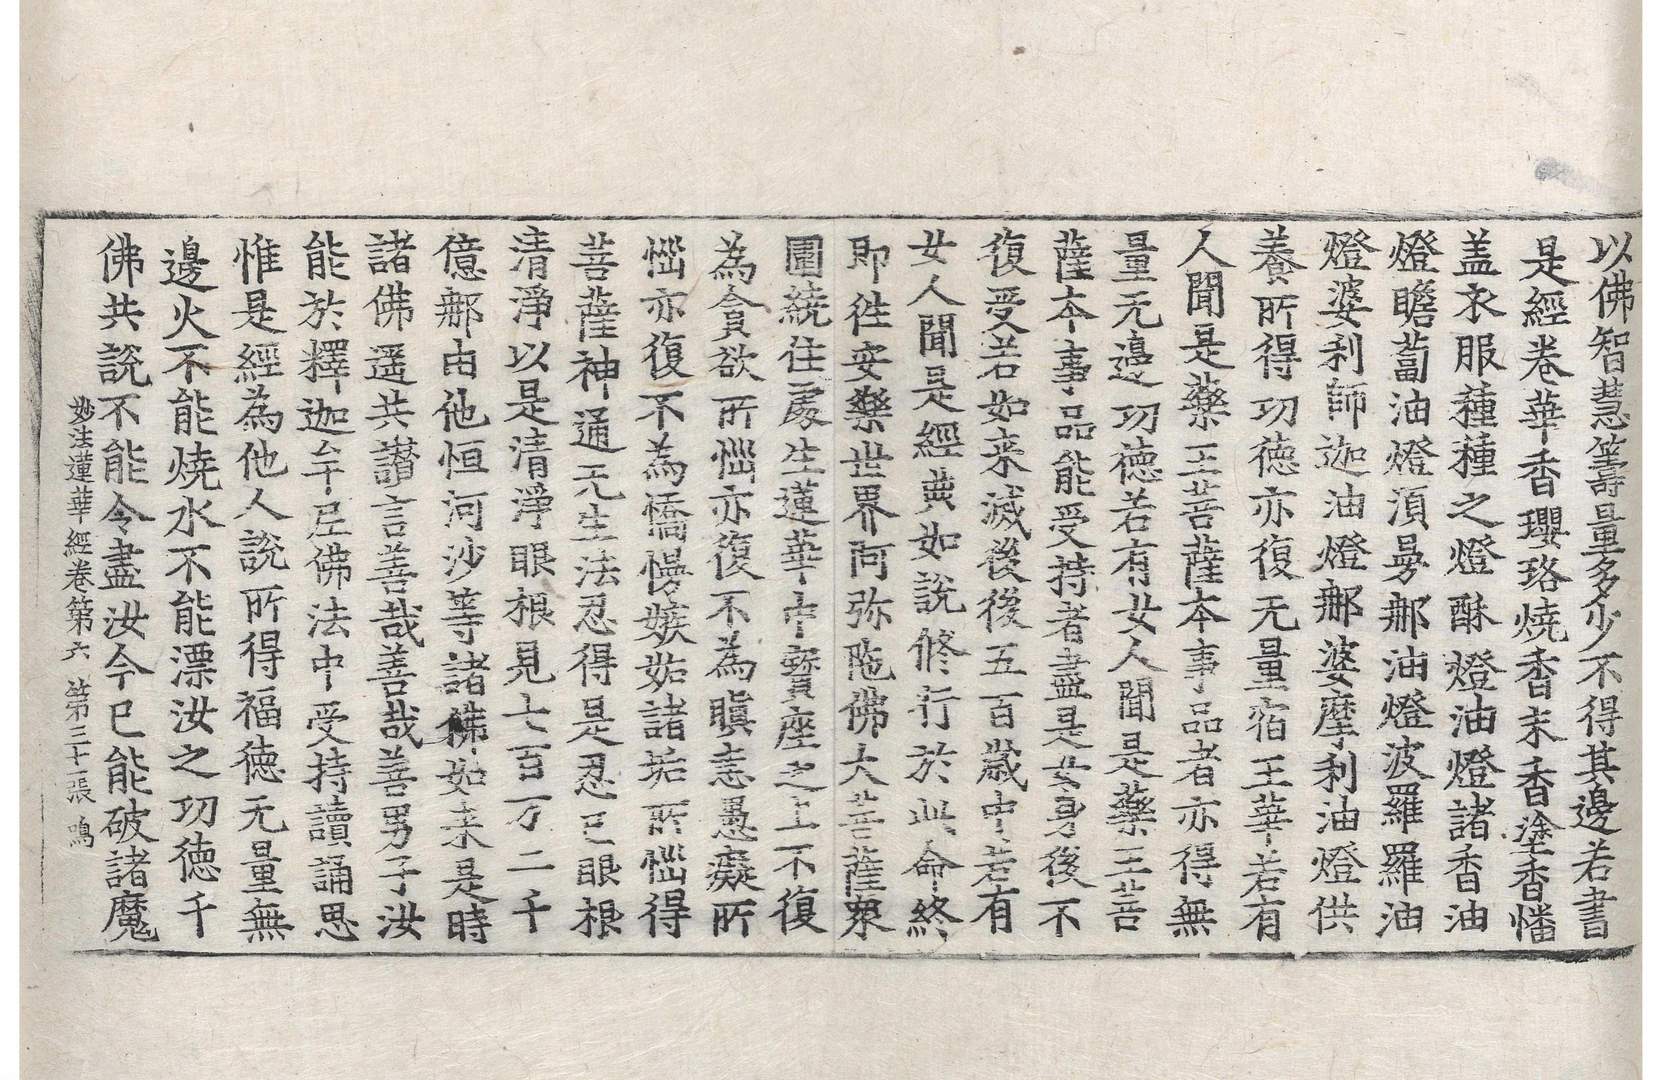 以佛智慧籌量多少不得其邊若書
是經卷華香瓔珞燒香末香塗香幡
盖衣服種種之燈酥燈油燈諸香油
燈瞻蔔油燈湏曼𨚗油燈波羅羅油
燈婆利師迦油燈𨚗婆摩利油燈供
養所得功德亦復无量宿王華若有
人聞是藥王菩薩本事品者亦得無
量无邊功德若有女人聞是藥王菩
薩本事品能受持者盡是女身後不
復受若如来滅後後五百歲中若有
女人聞是經典如說修行於此命終
即徃安樂世界阿弥陁佛大菩薩眾
圍繞住處生蓮華中寳座之上不復
為貪欲所惱亦復不為瞋恚愚癡所
惱亦復不為憍慢嫉妬諸垢所惱得
菩薩神通无生法忍得是忍已眼根
清淨以是清淨眼根見七百万二千
億𨚗由他恒河沙等諸佛如来是時
諸佛遥共讃言善哉善哉善男子汝
能於釋迦牟尼佛法中受持讀誦思
惟是經為他人說所得福德无量無
邊火不能燒水不能漂汝之功德千
佛共說不能令盡汝今已能破諸魔
妙法蓮華經卷第六 第三十一張 鳴